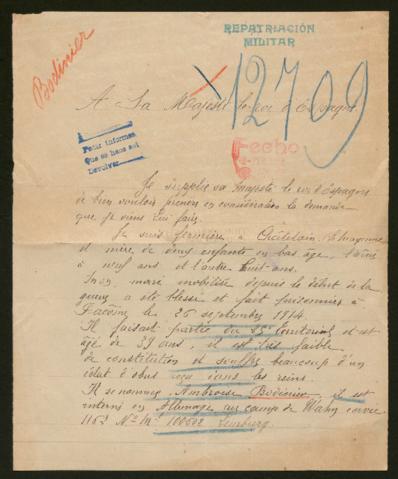 Bodinier
REPATRIACIÓN
MILITAR
12709
A Sa Majesté le roi d'Espagne
Pedir informes
Que se hace así
Devolver
Fecho
Je supplie sa Majesté le roi d'Espagne
de bien vouloir prendre en considération la demande
que je viens lui faire.
Je suis fermière à Châtelain, Mayenne
et mère de deux enfants en bas âge, l'aîné
a neuf ans et l'autre huit ans.
Mon mari mobilisé depuis le début de la
guerre a été blessé et fait prisonnier à
le 26 septembre 1914
Il faisait partie du 25e territorial et est
âgé de 39 ans, il est très faible
de constitution et souffre beaucoup d'un
éclat d'obus reçu dans les reins.
Il se nomme Ambroise Bodinier, il est
interné en Allemagne au camp de Wahn
1163 No